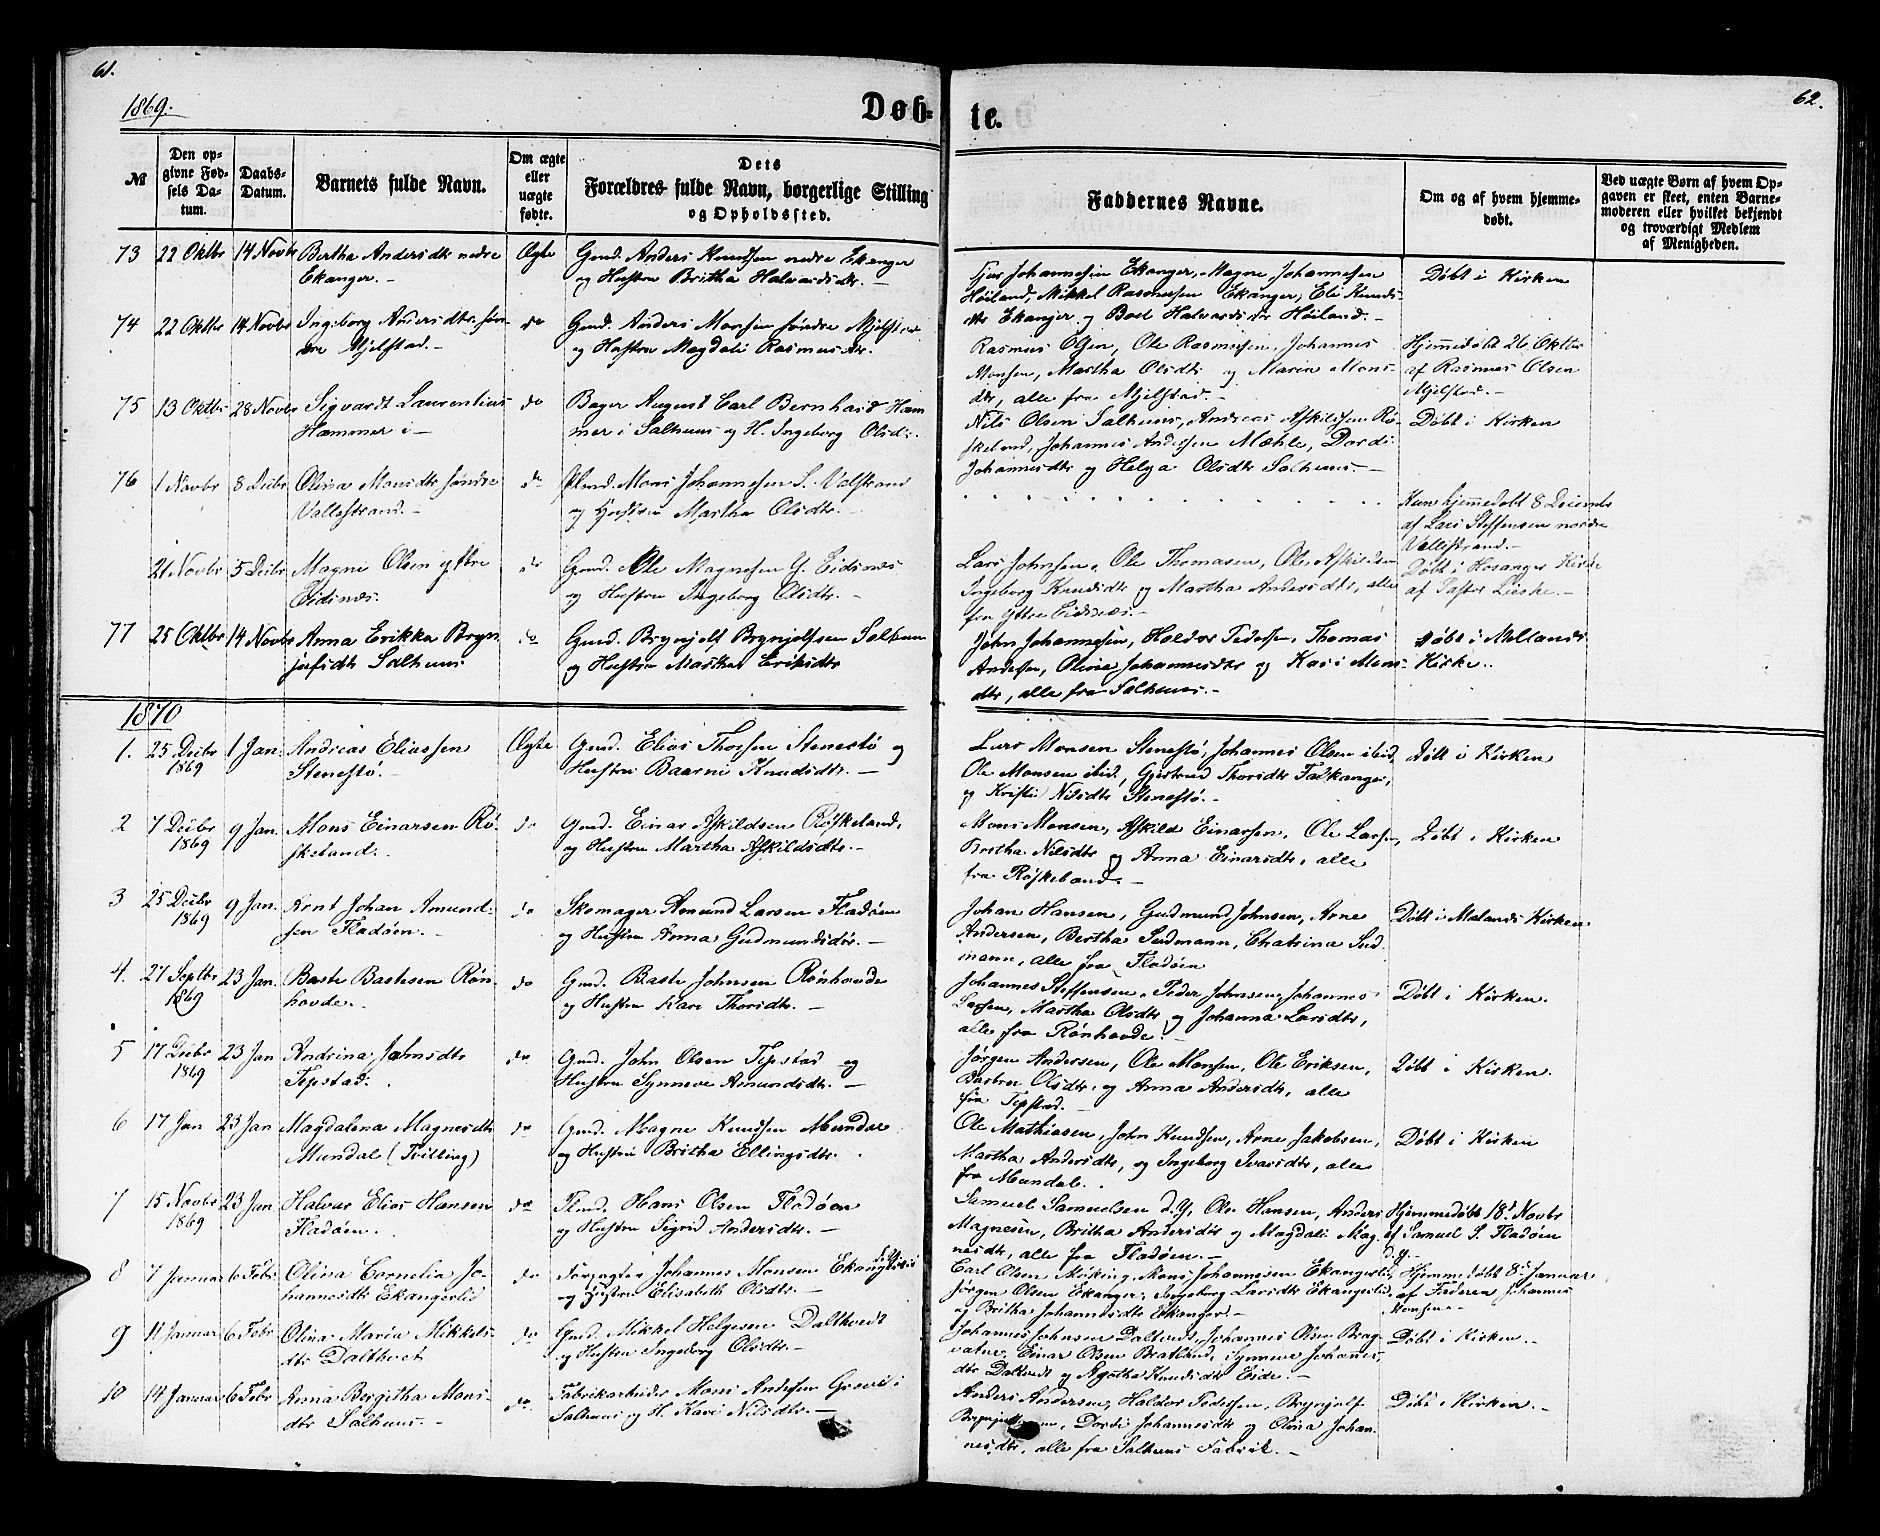 61.
62.
1869.
Døb-
te.
№
Den op-
givne Fød-
sels Da-
tum.
Daabs-
Datum.
Barnets fulde Navn.
Om ægte
eller
uægte
fødte.
Dets
Forældres fulde Navn, borgerlige Stilling
og Opholdssted.
Faddernes Navne.
Om og af hvem hjemme-
døbt.
Ved uægte Børn af hvem Op-
gaven er skeet, enten Barne-
moderen eller hvilket bekjendt
og troværdigt Medlem
af Menigheden.
73 22 Oktbr 14 Novbr Bertha Andersdtr nedre
Ekanger.-
Ægte
Gmd. Anders Knudsen nedre Ekanger
og Hustru Britha Halvardsdtr. -
Johannesen Ekanger, Magne Johannesen
Høiland, Mikkel Rasmussen Ekanger, Eli Knuds-
dtr Ekanger og Boel Halvardsdtr Høiland.-
Døbt i Kirken
74 22 Oktbr 14 Novbr Ingeborg Andersdtr søn-
dre Mjelstad.-
do
Gmd. Anders Monsen søndre Mjelstad
og Hustru Magdeli Rasmusdtr.
Rasmus Olsen, Ole Rasmussen, Johannes
Monsen, Martha Olsdtr og Marie Mons-
dtr, alle fra Mjelstad.-
Hjemmedøbt 26 Oktbr
af Rasmus Olsen
Mjelstad.-
75 13 Oktbr 28 Novbr Sigvardt Laurentius
Hammer i -
do
Bager August Carl Bernhard Ham-
mer i Salhuus og H. Ingeborg Olsdtr.
Nils Olsen Salhuus, Andreas Askildsen Rø-
skeland, Johannes Andersen Mæhle, Dordi
Johannesdtr og Helga Olsdtr Salhuus.-
Døbt i Kirken
76 1 Novbr 8 Decbr Olina Monsdtr søndre
Vallestrand.-
do
Mons Johannesen S. Valstrand
og Hustru Martha Olsdtr.
Kun hjemmedøbt 8 Decembr
af Lars Steffensen nordre
Vallestrand.-
21 Novbr 5 Decbr Magne Olsen yttre
Eidsnæs.
do
Gmd. Ole Magnesen Y. Eidsnæs
og Hustru Ingeborg Olsdtr.
Lars Johnsen, Ole Thomasen, Ole Askildsen
Ingeborg Knudsdtr og Martha Andersdtr, alle
fra Yttre Eidsnæs.-
Døbt i Hosanger Kirke
af Pastor Lieske.-
77 25 Oktbr 14 Novbr Anna Erikka Bryn-
julfsdtr Salhuus
do
Gmd. Brynjulf Brynjulfsen Salhuus
og Hustru Martha Eriksdtr
John Johannesen, Haldor Pedersen, Thomas
Andersen, Olina Johannesdtr og Kari Mons-
dtr, alle fra Salhuus.-
Døbt i Mellands
Kirke.
1870
1. 25 Decbr
1869
1 Jan. Andreas Eliassen
Stenestø.-
Ægte
Gmd. Elias Thorsen Stenestø og
Hustru Baarni Knudsdtr.-
Lars Monsen Stenestø, Johannes Olsen ibid,
Ole Monsen ibid, Gjertrud Thorsdtr Falkanger,
og Kristi Nilsdtr Stenestø.-
Døbt i Kirken
2 7 Decbr
1869
9 Jan. Mons Einarsen Rø-
skeland.
do
Gmd. Einar Askildsen Røskeland,
og Hustru Martha Askildsdtr.-
Mons Monsen, Askild Einarsen, Ole Larsen,
Brotha Nilsdtr og Anna Einarsdtr, alle
fra Røskeland.-
Døbt i Kirken
3 25 Decbr
1869
9 Jan. Arnt Johan Amund-
sen Fladøen.-
do
Skomager Amund Larsen Fladøen
og Hustru Anna Gudmundsdtr.-
Johan Hansen, Gudmund Johnsen, Arne
Andersen, Bertha Sudmann, Chatrina Sud-
mann, alle fra Fladøen
Døbt i Mælands Kirken
4. 27 Septbr
1869
23 Jan. Baste Bastesen Røn-
hovde.-
do
Gmd. Baste Johnsen Rønhovde
og Hustru Kari Thorsdtr.-
Johannes Steffensen, Peder Johnsen, Johannes
Larsen, Martha Olsdtr og Johanna Larsdtr,
alle fra Rønhovde.
Døbt i Kirken.
5 17 Decbr
1869
23 Jan Andrina Johnsdtr
Tepstad.
do
Gmd. John Olsen Tepstad og
Hustru Synneve Amundsdtr.-
Jørgen Andersen, Ole Monsen, Ole Eriksen,
Barbro Olsdtr. og Anna Andersdtr, alle
fra Tepstad.-
Døbt i Kirken.
6 17 Jan 23 Jan Magdalena Magnesdtr
Mundal (Tvilling)
do
Gmd. Magne Knudsen Mundal
og Hustru Britha Ellingsdtr.
Ole Mathiasen, John Knudsen, Arne Jakobsen,
Martha Andersdtr, og Ingeborg Ivarsdtr, alle
fra Mundal.
Døbt i Kirken
7 15 Novbr
1869
23 Jan Halvar Elias Hansen
Fladøen.
do
Hans Olsen Fladøen
og Hustru Sigrid Andersdtr.-
Samuel Samuelsen d.y, Ole Hansen, Anders
Magnesen, Britha Andersdtr og Magdeli Mag-
nesdtr, alle fra Fladøen.-
Hjemmedøbt 18 Novbr
af Samuel S. Fladøen
d.y.-
8 7 Januar 6 Febr Olina Cornelia Jo-
hannesdtr Ekangerlid
do
Forpagter Johannes Monsen Ekangerlid
og Hustru Elisabeth Olsdtr.-
Carl Olsen Mjøking, Mons Johannesen Ekangerlid,
Jørgen Olsen Ekanger, Ingeborg Larsdtr Ekangerlid,
og Britha Johannesdtr Ekanger.-
Hjemmedøbt 8 Januar
af Faderen Johannes
Monsen.-
9 11 Januar 6 Febr Olina Maria Mikkels-
dtr Dalthvet
do
Gmd. Mikkel Helgesen Daltvedt
og Hustru Ingeborg Olsdtr.-
Johannes Johnsen Daltvedt, Johannes Olsen Brag-
vatne, Einar Olsen Bratland, Synneve Johannes-
dtr Daltvedt og Agatha Knudsdtr Eide.-
Døbt i Kirken.-
10 14 Januar 6 Febr Anna Bergitha Mons-
dtr Salhuus.-
do
Fabrikarbeider Mons Andersen i
Salhuus og H. Kari Nilsdtr.-
Anders Andersen, Haldor Pedersen, Brynjulf
Brynjulfsen, Dordi Johannesdtr og Olina Johan-
nesdtr, alle fra Salhuus Fabrik.-
Døbt i Kirken.-